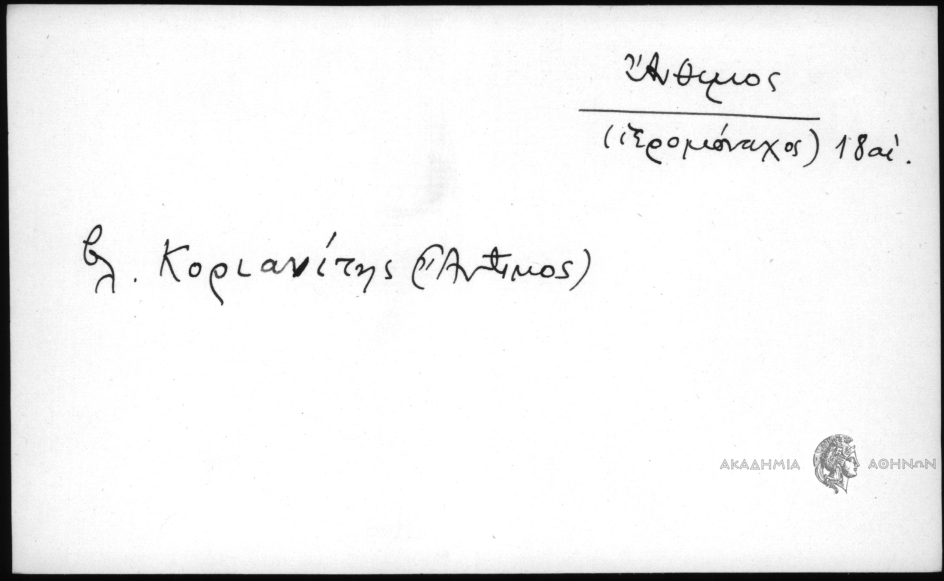 Ἄνθιμος
(ἱερομόναχος) 18 αἰ.
βλ. Κοριανίτης (Ἄνθιμος)
ΑΚΑΔΗΜΙΑ ΑΘΗΝΩΝ